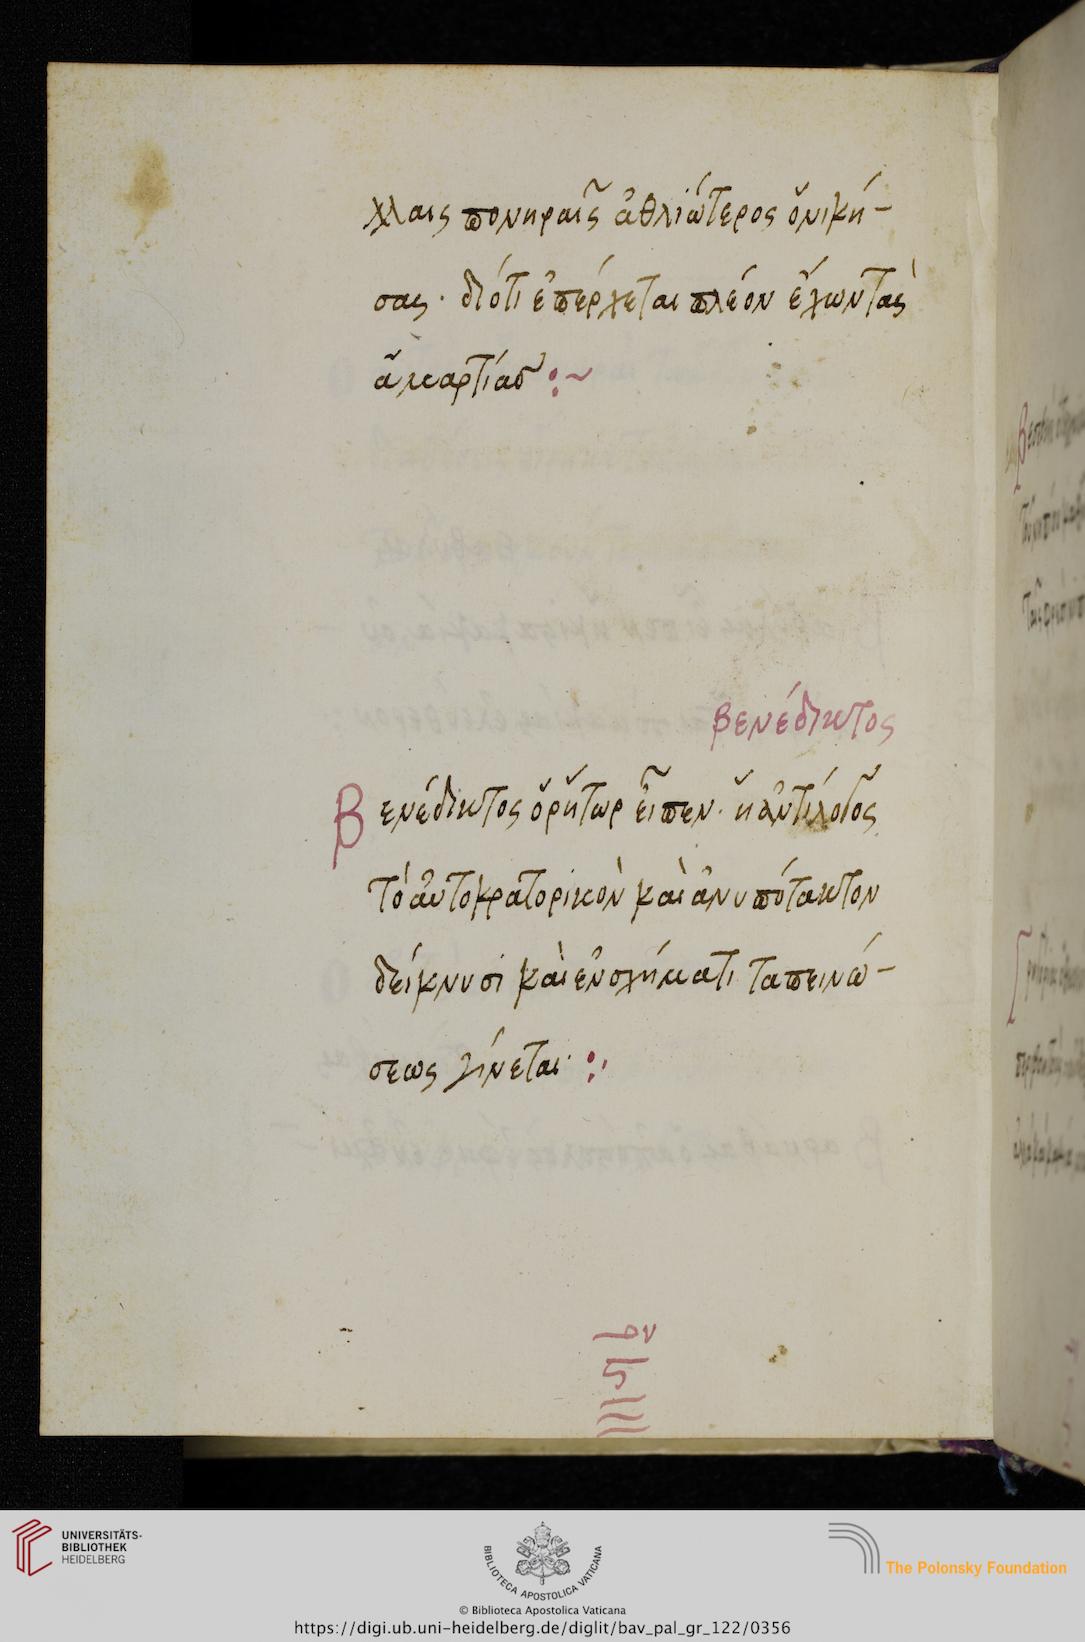 λλαις πονηραῖς ἀθλιώτερος ὁ νική-
σας · διότι ἐπέρχεται πλέον ἔχων τὰς
ἁμαρτίας :~
βενέδικτος
Βενέδικτος ὁ ῥήτωρ εἶπεν · ἡ
τὸ αὐτοκρατορικὸν καὶ ἀνυπότακτον
δείκνυσι καὶ ἐν σχήματι ταπεινώ-
σεως γίνεται :·
UNIVERSITÄTS-
BIBLIOTHEK
HEIDELBERG
BIBLIOTECA APOSTOLICA VATICANA
The Polonsky Foundation
© Biblioteca Apostolica Vaticana
https://digi.ub.uni-heidelberg.de/diglit/bav_pal_gr_122/0356